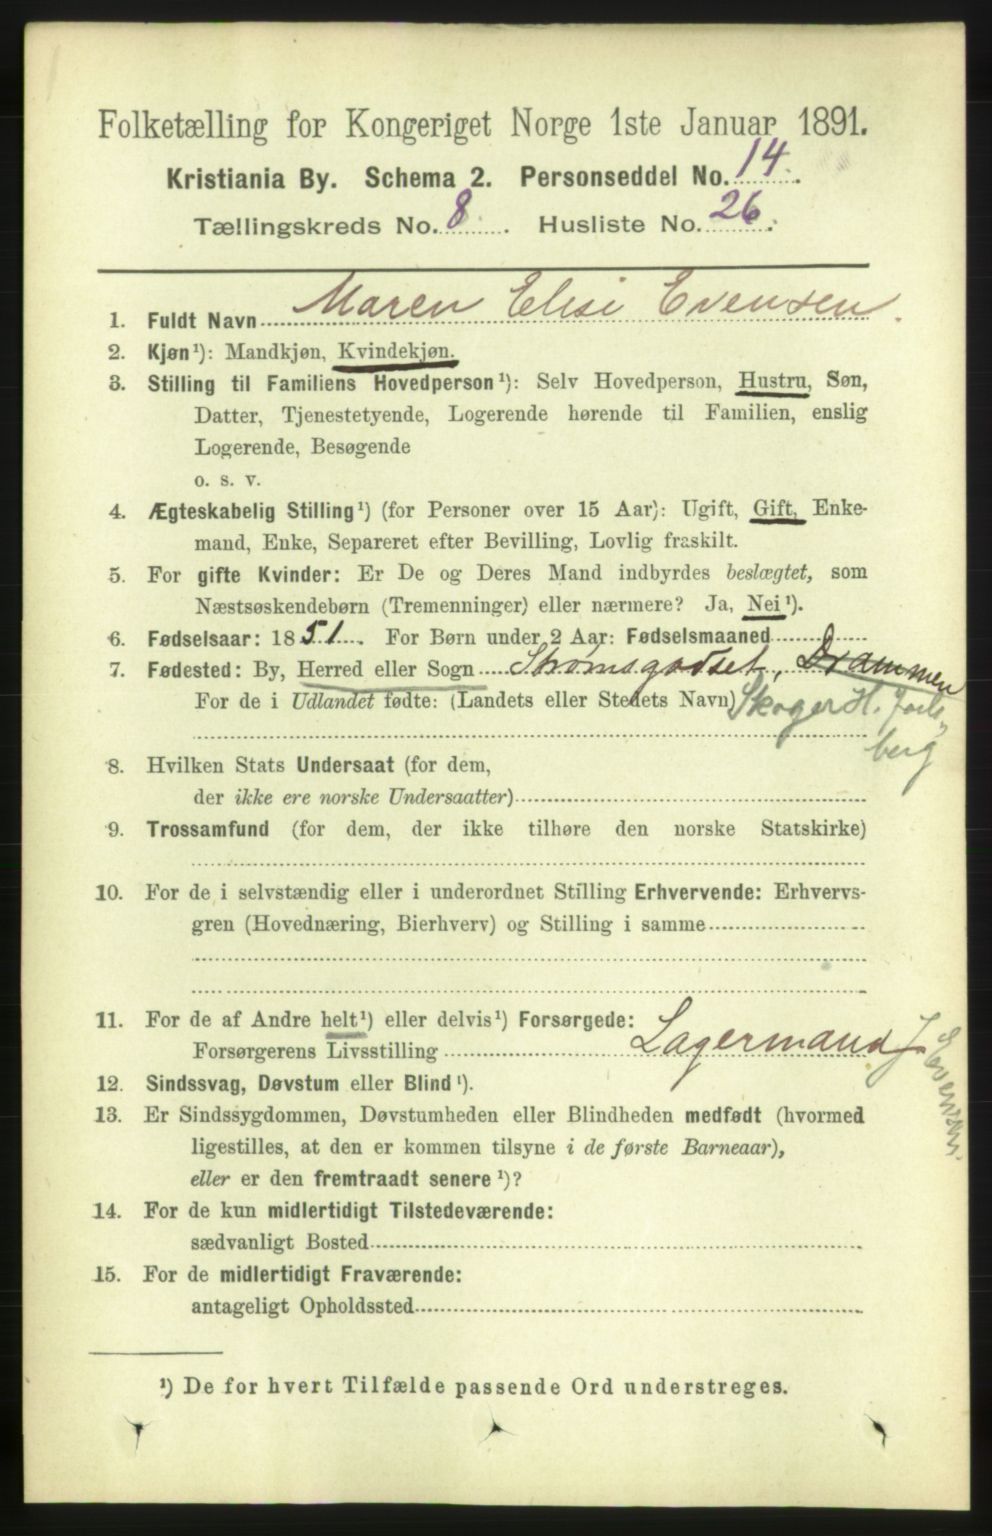 Folketælling for Kongeriget Norge 1ste Januar 1891.
Kristiania By. Schema 2. Personseddel No. 14.
Tællingskreds No. 8. Husliste No. 26.
1. Fuldt Navn Maren Elisi Evensen.
2. Kjøn¹): Mandkjøn, Kvindekjøn.
3. Stilling til Familiens Hovedperson¹): Selv Hovedperson, Hustru, Søn,
Datter, Tjenestetyende, Logerende hørende til Familien, enslig
Logerende, Besøgende
o. s. v.
4. Ægteskabelig Stilling¹) (for Personer over 15 Aar): Ugift, Gift, Enke-
mand, Enke, Separeret efter Bevilling, Lovlig fraskilt.
5. For gifte Kvinder: Er De og Deres Mand indbyrdes beslægtet, som
Næstsøskendebørn (Tremenninger) eller nærmere? Ja, Nei¹).
6. Fødselsaar: 1851. For Børn under 2 Aar: Fødselsmaaned
7. Fødested: By, Herred eller Sogn Strømsgodset, Drammen
For de i Udlandet fødte: (Landets eller Stedets Navn) Skoger H. Jarls
berg
8. Hvilken Stats Undersaat (for dem,
der ikke ere norske Undersaatter)
9. Trossamfund (for dem, der ikke tilhøre den norske Statskirke)
10. For de i selvstændig eller i underordnet Stilling Erhvervende: Erhvervs-
gren (Hovednæring, Bierhverv) og Stilling i samme
11. For de af Andre helt¹) eller delvis¹) Forsørgede:
Forsørgerens Livsstilling Lagermand J Evensen.
12. Sindssvag, Døvstum eller Blind¹).
13. Er Sindssygdommen, Døvstumheden eller Blindheden medfødt (hvormed
ligestilles, at den er kommen tilsyne i de første Barneaar),
eller er den fremtraadt senere¹)?
14. For de kun midlertidigt Tilstedeværende:
sædvanligt Bosted
15. For de midlertidigt Fraværende:
antageligt Opholdssted
¹) De for hvert Tilfælde passende Ord understreges.